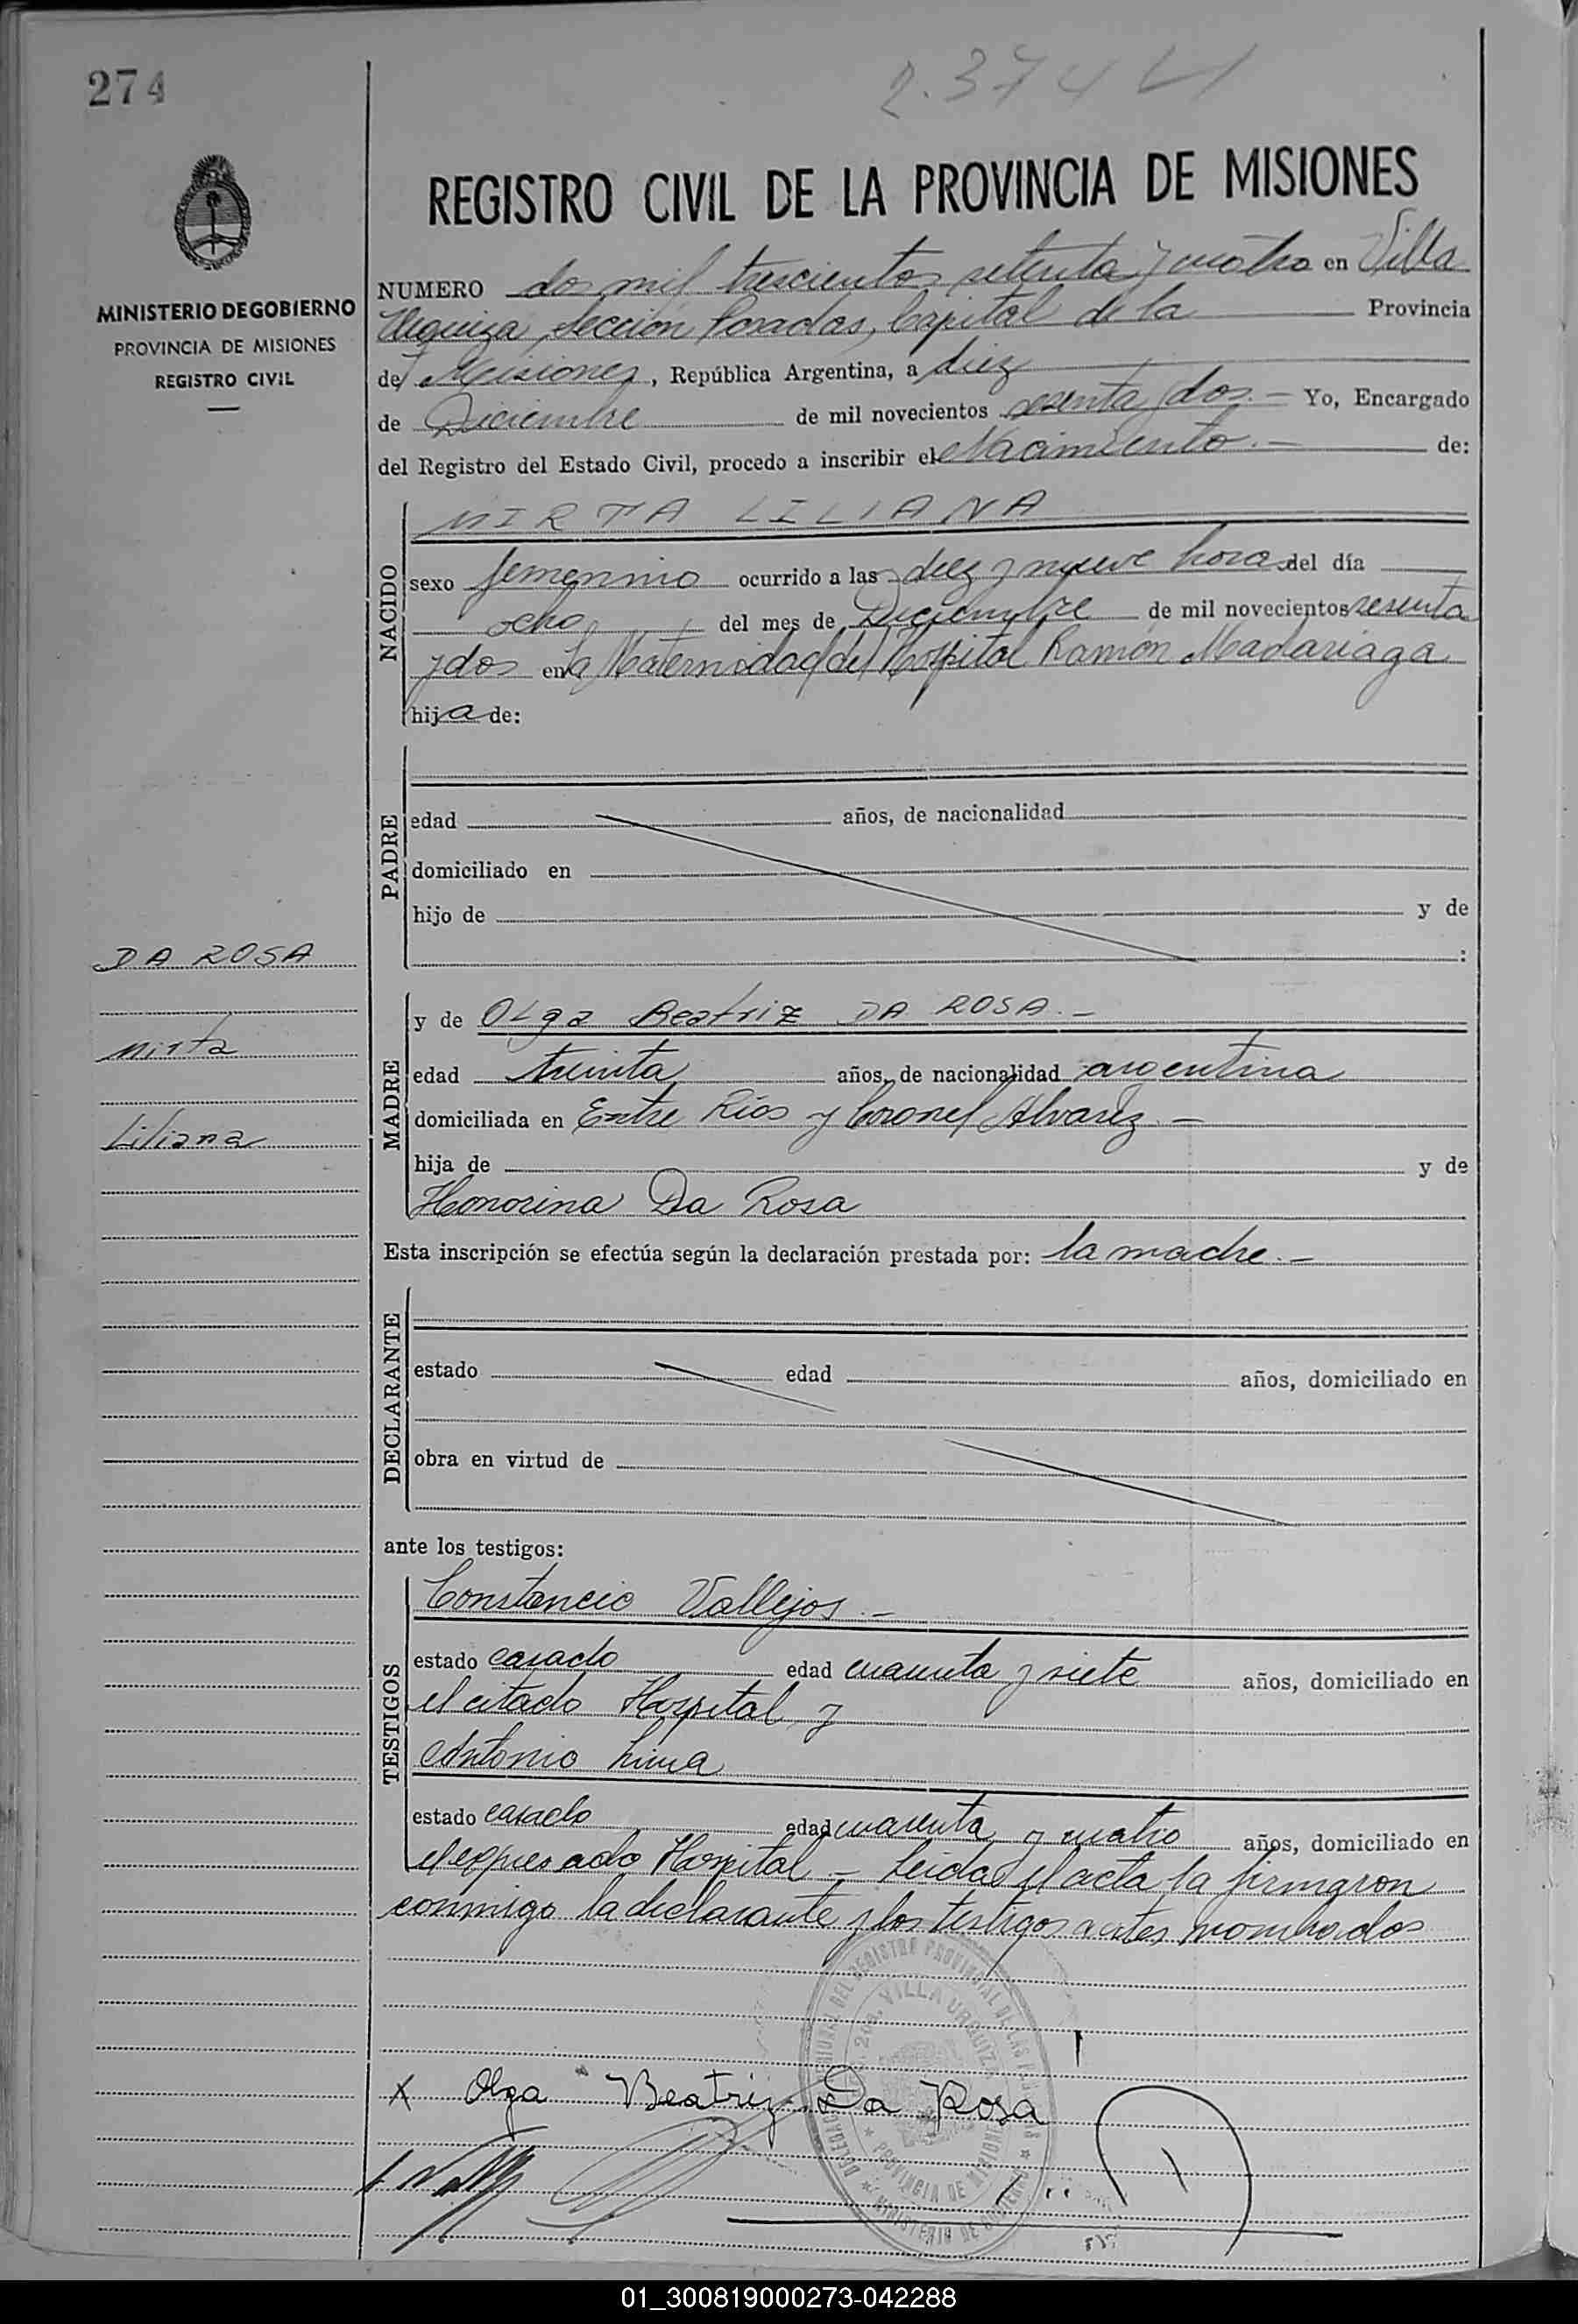 274
2.374
REGISTRO CIVIL DE LA PROVINCIA DE MISIONES
MINISTERIO DE GOBIERNO
PROVINCIA DE MISIONES
REGISTRO CIVIL
NUMERO dos mil trescientos setenta y cuatro en Villa
Urquiza, Sección Posadas, Capital de la Provincia
de Misiones, República Argentina, a diez
de Diciembre de mil novecientos sesenta y dos.- Yo, Encargado
del Registro del Estado Civil, procedo a inscribir el Nacimiento.- de:
NACIDO
MIRTA LILIANA
sexo femenino ocurrido a las diez y nueve horas del día
ocho del mes de Diciembre de mil novecientos sesenta
y dos en la Maternidad del Hospital Ramón Madariaga
hija de:
PADRE
edad años, de nacionalidad
domiciliado en
hijo de y de
:
DA ROSA
Mirta
Liliana
MADRE
y de Olga Beatriz DA ROSA.-
edad treinta años, de nacionalidad argentina
domiciliada en Entre Ríos y Coronel Alvarez.-
hija de y de
Honorina Da Rosa
Esta inscripción se efectúa según la declaración prestada por: la madre.-
DECLARANTE
estado edad años, domiciliado en
obra en virtud de
ante los testigos:
TESTIGOS
Constancio Vallejos.-
estado casado edad cuarenta y siete años, domiciliado en
el citado Hospital y
Antonio Lima
estado casado edad cuarenta y cuatro años, domiciliado en
el expresado Hospital - Leida el acta la firmaron
conmigo la declarante y los testigos antes nombrados
VILLA URQUIZA
PROVINCIA DE MISIONES
MINISTERIO DE GOBIERNO
x Olga Beatriz Da Rosa
01_300819000273-042288